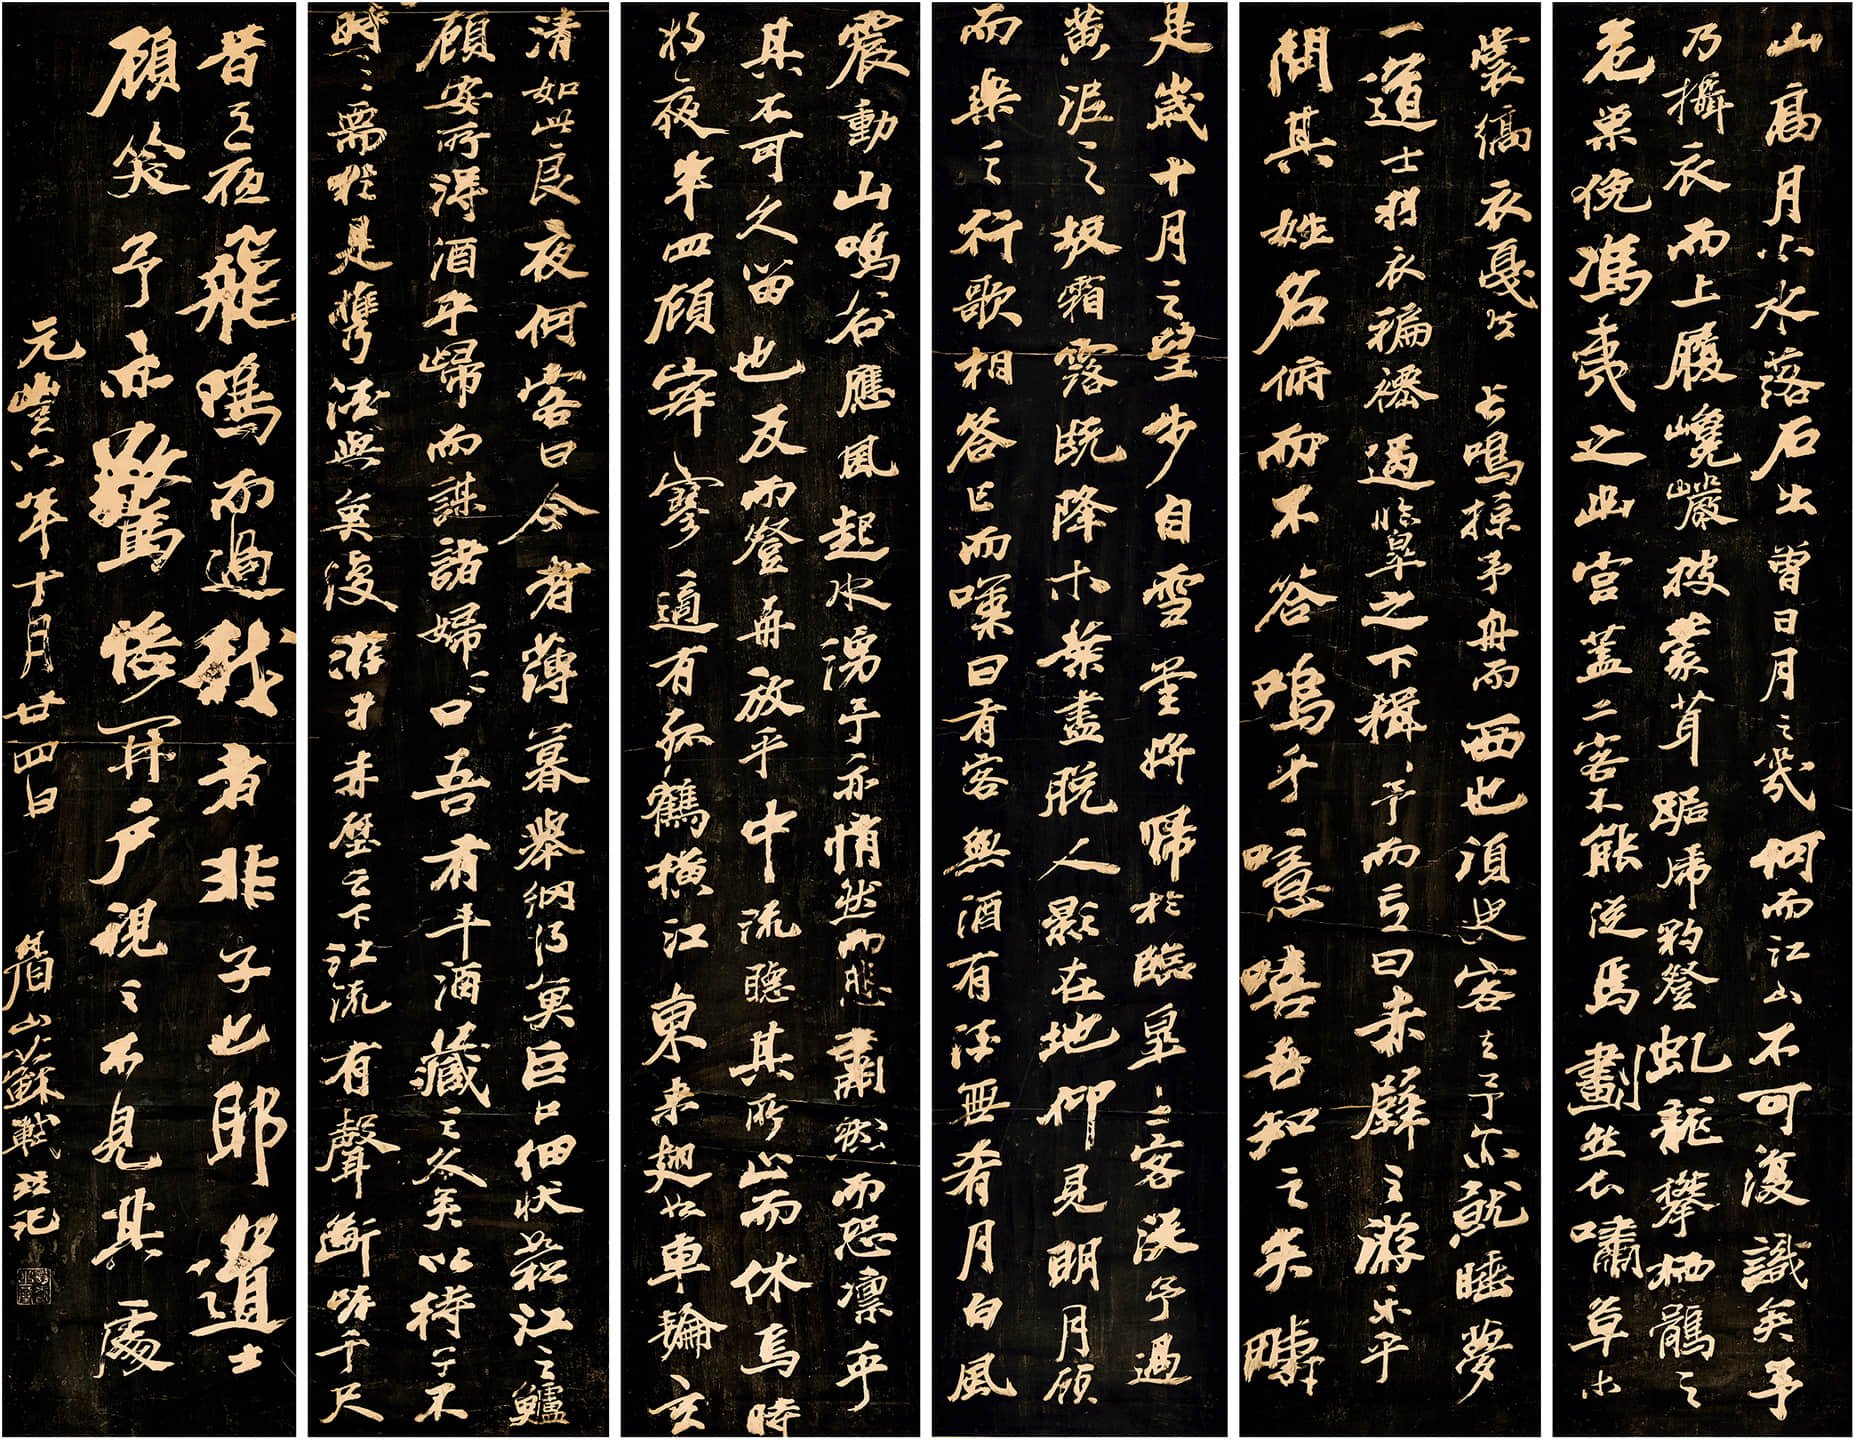 山高月小水落石出曾日月之幾何而江山不可復識矣予
乃攝衣而上履巉巖披蒙茸踞虎豹登虬龍攀栖鶻之
危巢俛馮夷之幽宮蓋二客不能從焉劃然長嘯草木
裳縞衣戛然長鳴掠予舟而西也須臾客去予亦就睡夢
一道士羽衣褊褼過臨皋之下揖予而言曰赤壁之游樂乎
問其姓名俯而不答嗚乎噫嘻吾知之矣疇
是歲十月之望步自雪堂將歸於臨皋二客從予過
黃泥之坂霜露既降木葉盡脫人影在地仰見明月顧
而樂之行歌相答已而嘆曰有客無酒有酒無肴月白風
震動山鳴谷應風起水湧予亦悄然而悲肅然而恐凜乎
其不可久留也反而登舟放乎中流聽其所止而休焉時
將夜半四顧寂寥適有孤鶴橫江東來翅如車輪玄
清如此良夜何客曰今者薄暮舉網得魚巨口細狀如松江之鱸
顧安所得酒乎歸而謀諸婦婦曰吾有斗酒藏之久矣以待子不
時之需於是攜酒與魚復游於赤壁之下江流有聲斷岸千尺
昔之夜飛鳴而過我者非子也耶道士
顧笑予亦驚悟開戶視之不見其處
元豐六年十月廿四日 眉山蘇軾並記